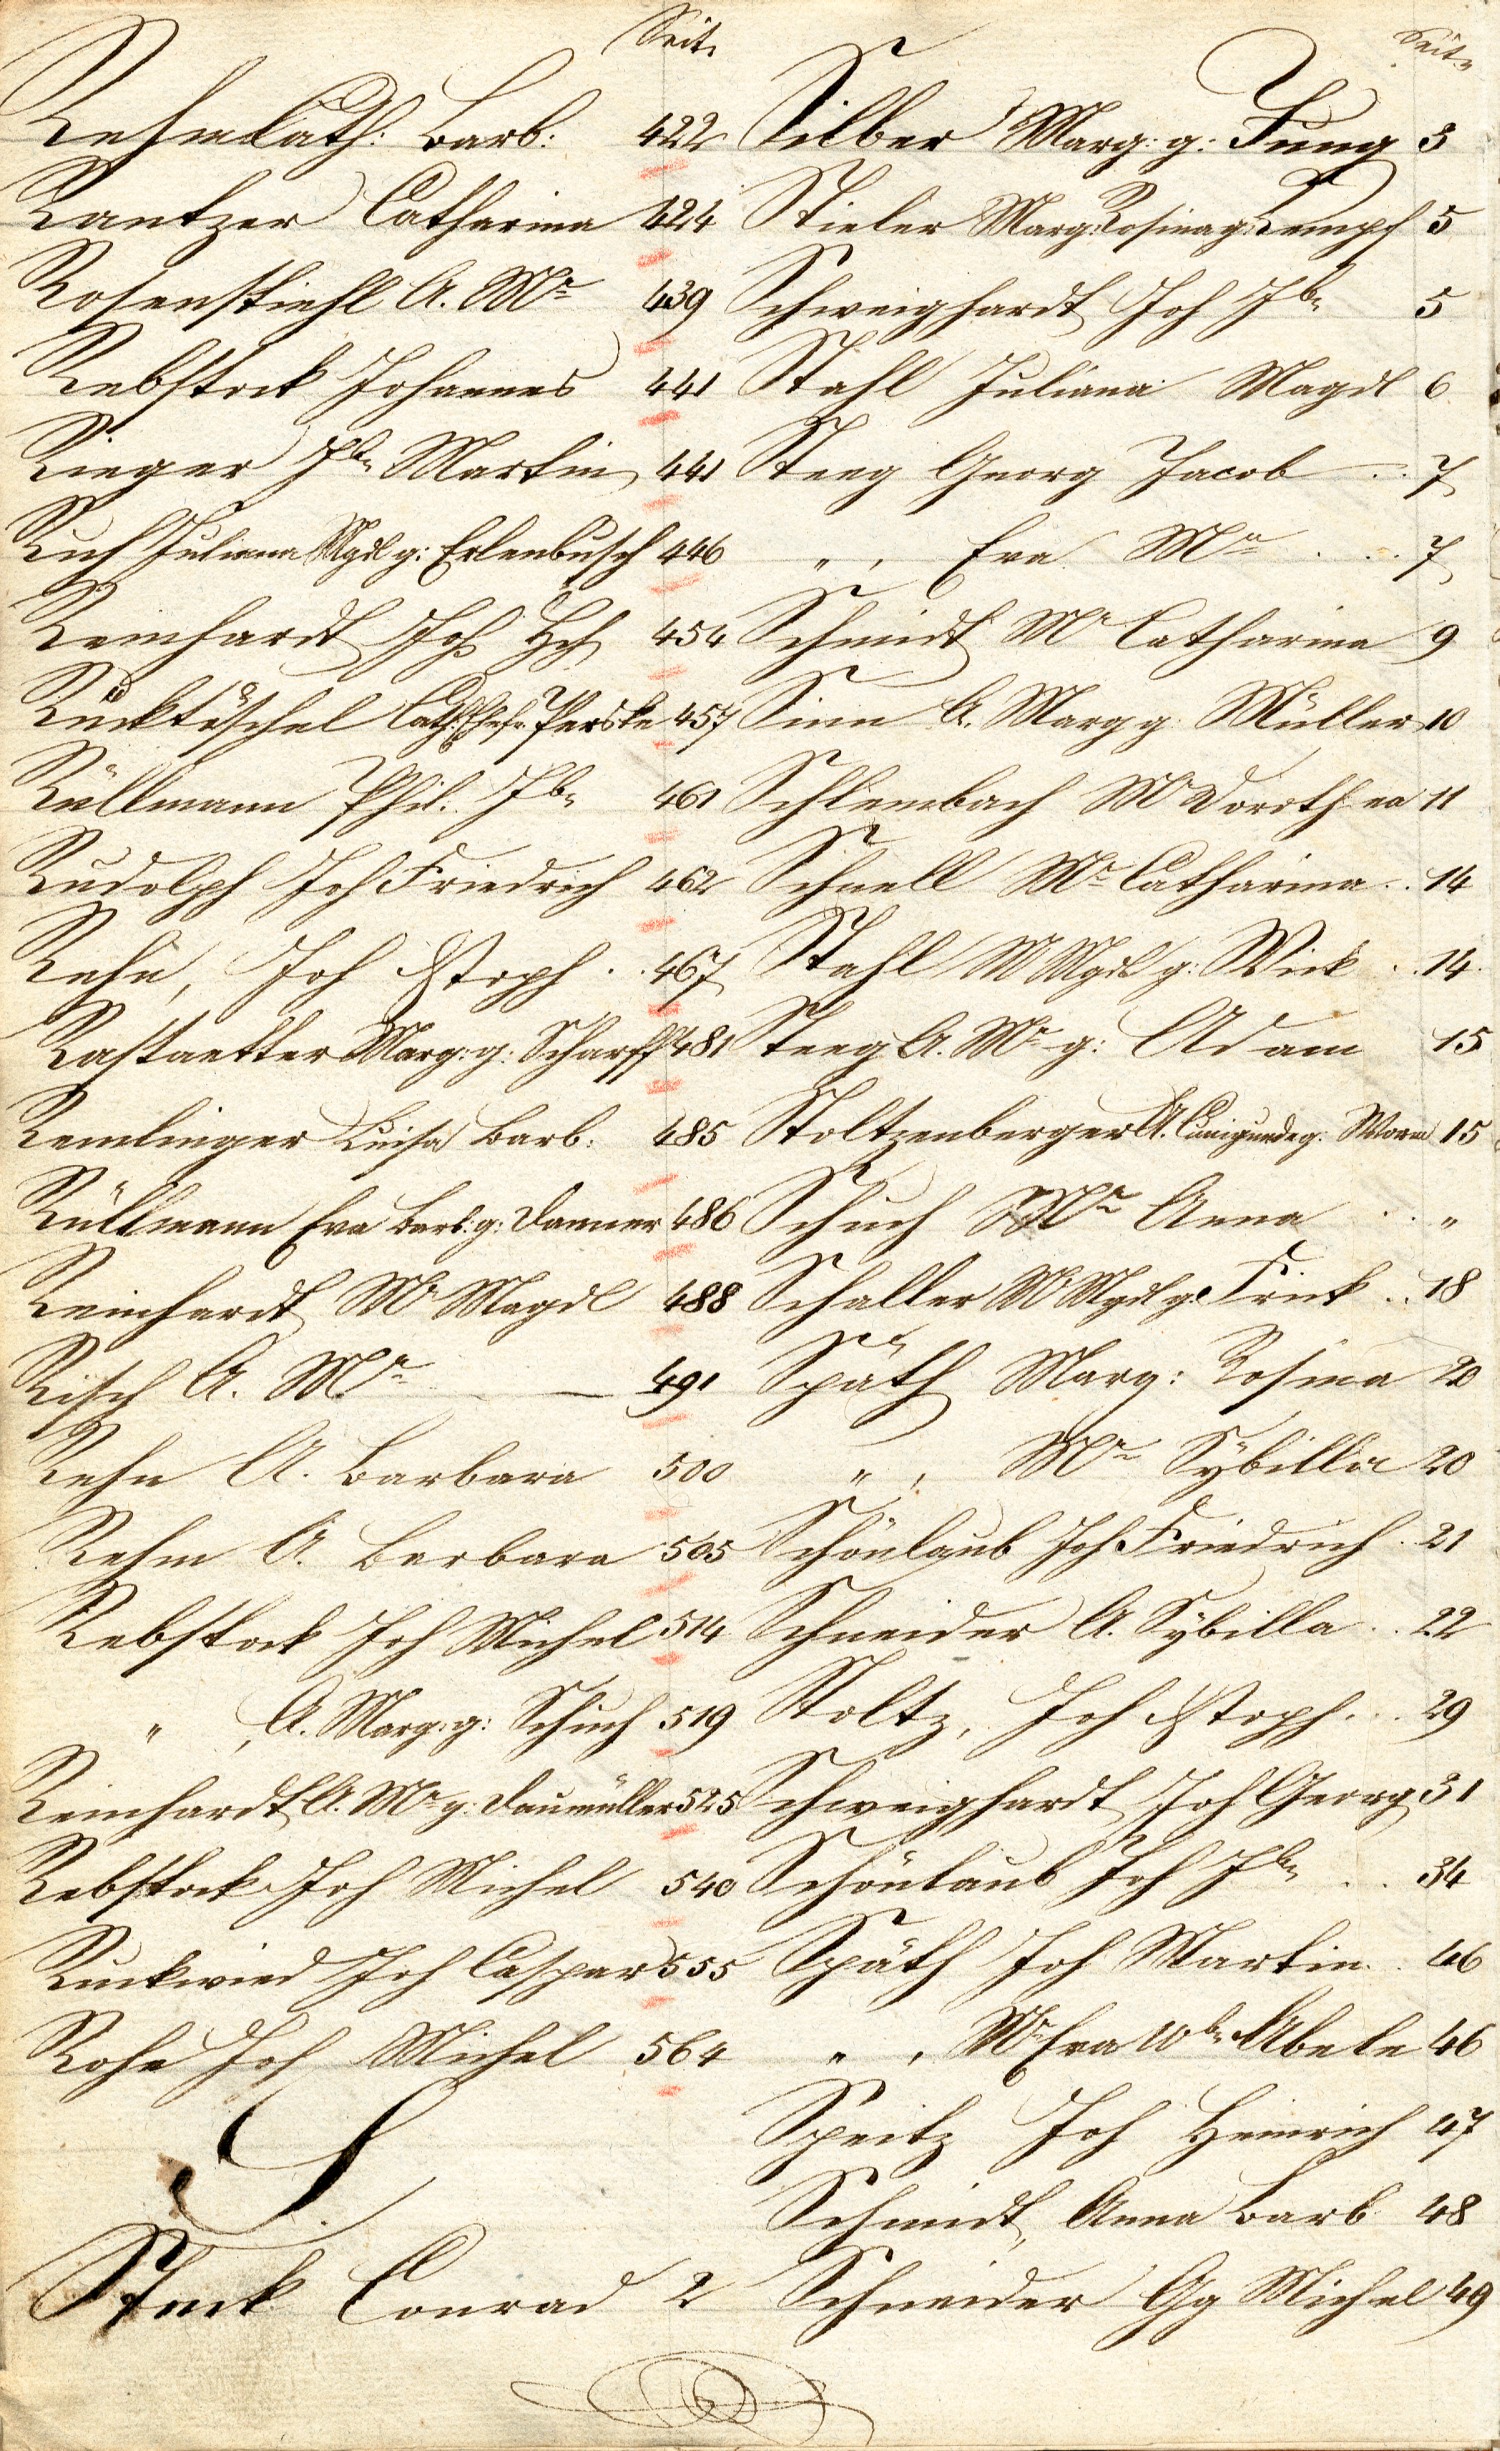 Seite
Rehm Cath: Barb: 422
Rantzer Catharina 424
Rosenstiehl A. Mr 439
Rebstock Johannes 441
Rieger Jb. Martin 441
Ruf Juliana Mgdl g: Erlenbusch 446
Reinhardt Joh Hch 454
Rücktäschel Cath. Ehefr. Perske 457
Rüllmann Phil. Jb. 461
Rudolph Joh Friedrich 462
Rehn, Joh Xstoph .. 467
Rastaetter Marg: g: Scharff 481
Remlinger Luisa Barb: 485
Rüllmann Eva Barb: g: Danner 486
Reinhardt Mr Magdl 488
Risch A. Mr — 491
Rehn A. Barbara 500
Rehm A. Barbara 505
Rebstock Joh Michel 514
" , A. Marg: g: Schuch 519
Reinhardt A. Mr g: Daumüller 525
Rebstock Joh Michel 540
Ruckwied Joh Caspar 555
Rohe Joh Michel 564
S.
Conrad 2
Seite
Silber Marg: g: Jung 3
Stieler Marg: Rosina g: Kempf 5
Schweighardt Joh Jb. 5
Stahl Juliana Magdl 6
Steeg Georg Jacob .. 7
" , Eva Mr ... 7
Schmidt Mr Catharina 9
Sinn A. Marg g: Müller 10
Schlembach Mr Dorothea 11
Schnell Mr Catharina .. 14
Stahl M Mgdl g: Wick .. 14
Steeg A. Mr g: Adam 15
Stoltzenberger A. Cunigunde g: Worm 15
Schuch Mr Anna .. "
Schaller M Mgdl g: Frick .. 18
Späth Marg: Rosina 20
" , Mr Sÿbilla 20
Schönlaub Joh Friedrich . 21
Schneider A. Sÿbilla .. 22
Stoltz, Joh Xstoph ... 29
Schweighardt Joh Georg 31
Schönlaub Joh Jb. .. 34
Späth Joh Martin . 46
" , Mr Eva Wb. Abele 46
Speitz Joh Heinrich 47
Schmidt, Anna Barb 48
Schneider Gg Michel 49